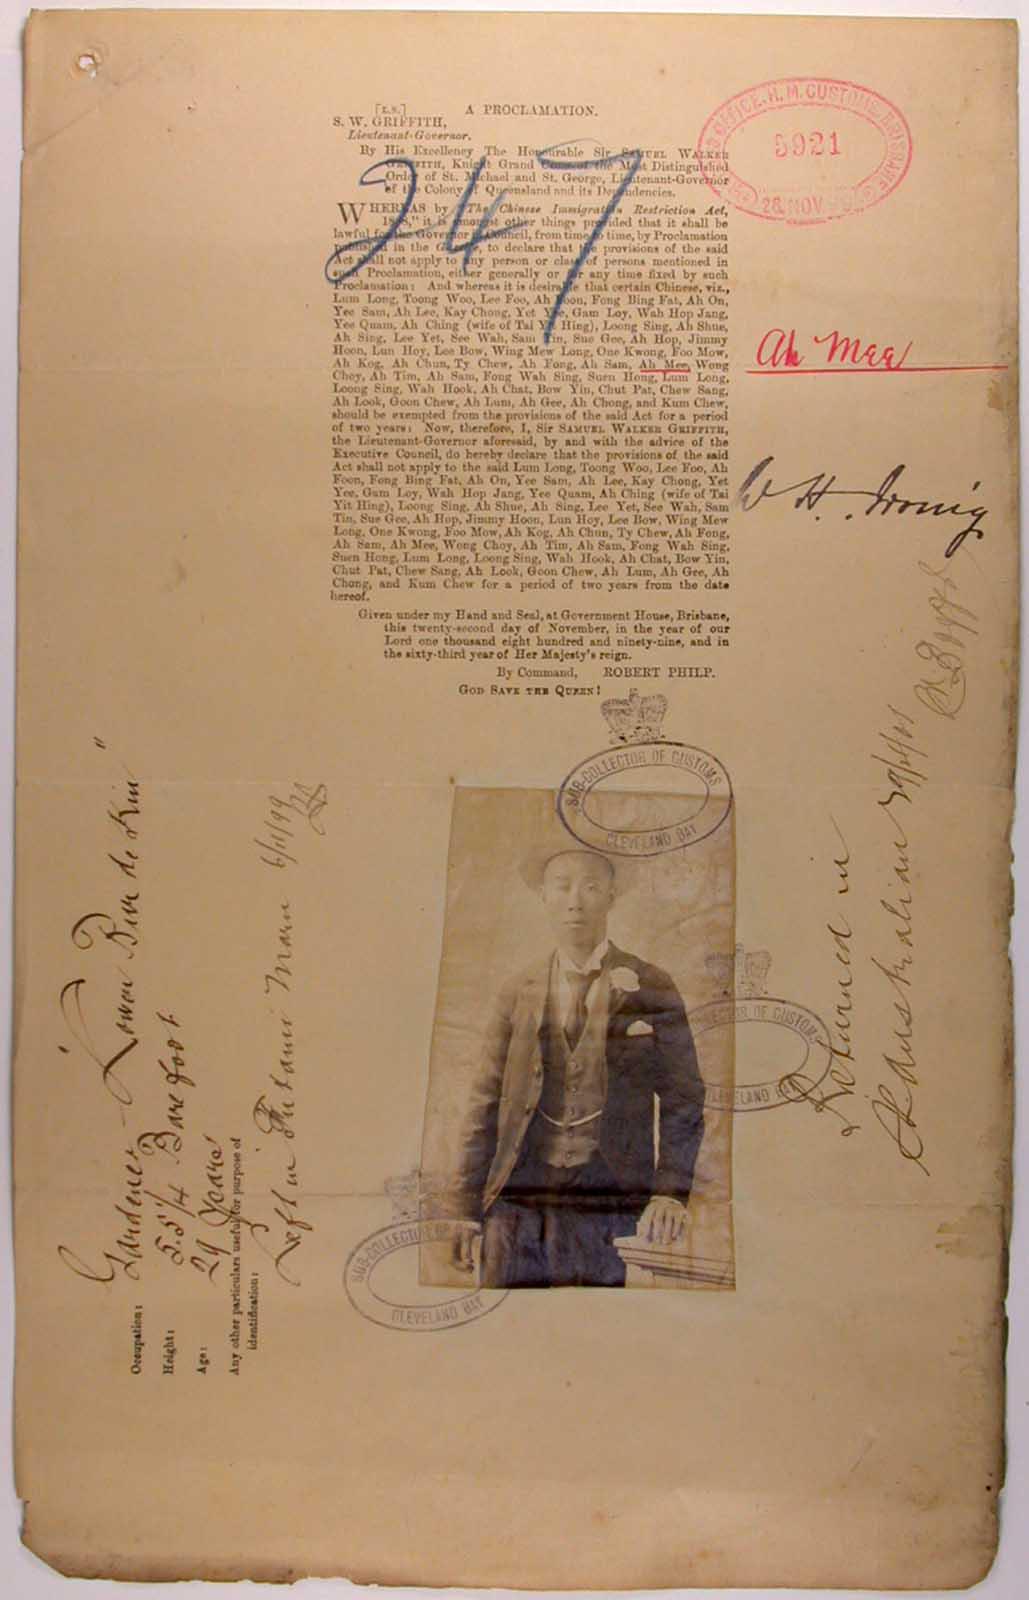 [L.S.] A PROCLAMATION.
S. W. GRIFFITH,
Lieutenant-Governor.
By His Excellency The Honourable Sir SAMUEL WALKER
GRIFFITH, Knight Grand Cross of the Most Distinguished
Order of St. Michael and St. George, Lieutenant-Governor
of the Colony of Queensland and its Dependencies.
WHEREAS by "The Chinese Immigration Restriction Act,
1888," it is amongst other things provided that it shall be
lawful for the Governor in Council, from time to time, by Proclamation
published in the Gazette, to declare that the provisions of the said
Act shall not apply to any person or class of persons mentioned in
such Proclamation, either generally or for any time fixed by such
Proclamation: And whereas it is desirable that certain Chinese, viz.,
Lum Long, Toong Woo, Lee Foo, Ah Foon, Fong Bing Fat, Ah On,
Yee Sam, Ah Lee, Kay Chong, Yet Yee, Gam Loy, Wah Hop Jang,
Yee Quam, Ah Ching (wife of Tai Yit Hing), Loong Sing, Ah Shue,
Ah Sing, Lee Yet, See Wah, Sam Tin, Sue Gee, Ah Hop, Jimmy
Hoon, Lun Hoy, Lee Bow, Wing Mew Long, One Kwong, Foo Mow,
Ah Kog, Ah Chun, Ty Chew, Ah Fong, Ah Sam, Ah Mee, Wong
Choy, Ah Tim, Ah Sam, Fong Wah Sing, Suen Hong, Lum Long,
Loong Sing, Wah Hook, Ah Chat, Bow Yin, Chut Pat, Chew Sang,
Ah Look, Goon Chew, Ah Lum, Ah Gee, Ah Chong, and Kum Chew,
should be exempted from the provisions of the said Act for a period
of two years: Now, therefore, I, Sir SAMUEL WALKER GRIFFITH,
the Lieutenant-Governor aforesaid, by and with the advice of the
Executive Council, do hereby declare that the provisions of the said
Act shall not apply to the said Lum Long, Toong Woo, Lee Foo, Ah
Foon, Fong Bing Fat, Ah On, Yee Sam, Ah Lee, Kay Chong, Yet
Yee, Gum Loy, Wah Hop Jang, Yee Quam, Ah Ching (wife of Tai
Yit Hing), Loong Sing, Ah Shue, Ah Sing, Lee Yet, See Wah, Sam
Tin, Sue Gee, Ah Hop, Jimmy Hoon, Lun Hoy, Lee Bow, Wing Mew
Long, One Kwong, Foo Mow, Ah Kog, Ah Chun, Ty Chew, Ah Fong,
Ah Sam, Ah Mee, Wong Choy, Ah Tim, Ah Sam, Fong Wah Sing,
Suen Hong, Lum Long, Loong Sing, Wah Hook, Ah Chat, Bow Yin,
Chut Pat, Chew Sang, Ah Look, Goon Chew, Ah Lum, Ah Gee, Ah
Chong, and Kum Chew for a period of two years from the date
hereof.
Given under my Hand and Seal, at Government House, Brisbane,
this twenty-second day of November, in the year of our
Lord one thousand eight hundred and ninety-nine, and in
the sixty-third year of Her Majesty's reign.
By Command, ROBERT PHILP.
GOD SAVE THE QUEEN!
247
OFFICE. H. M. CUSTOMS. BRISBANE
5921
28 NOV 99
Ah Mee
W H. Irving
Returned in
Australian
SUB-COLLECTOR OF CUSTOMS
CLEVELAND BAY
SUB-COLLECTOR OF CUSTOMS
CLEVELAND BAY
SUB-COLLECTOR OF CUSTOMS
CLEVELAND BAY
Occupation: Gardener Lower Bur de Kin"
Height: 5.5 1/4 Barefoot
Age: 29 Years
Any other particulars useful for purpose of
identification:
Left in Futami Maru 6/11/99